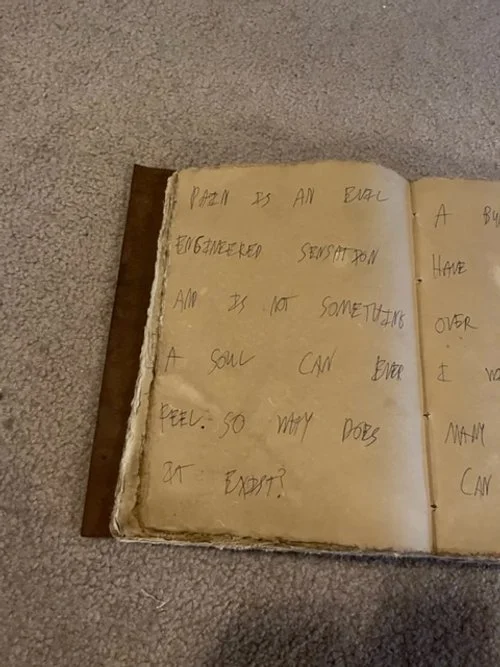 PAIN IS AN EVIL
ENGINEERED SENSATION
AND IS NOT SOMETHING
A SOUL CAN EVER
FEEL. SO WHY DOES
IT EXIST?
A
HAVE
OVER
I
MANY
CAN